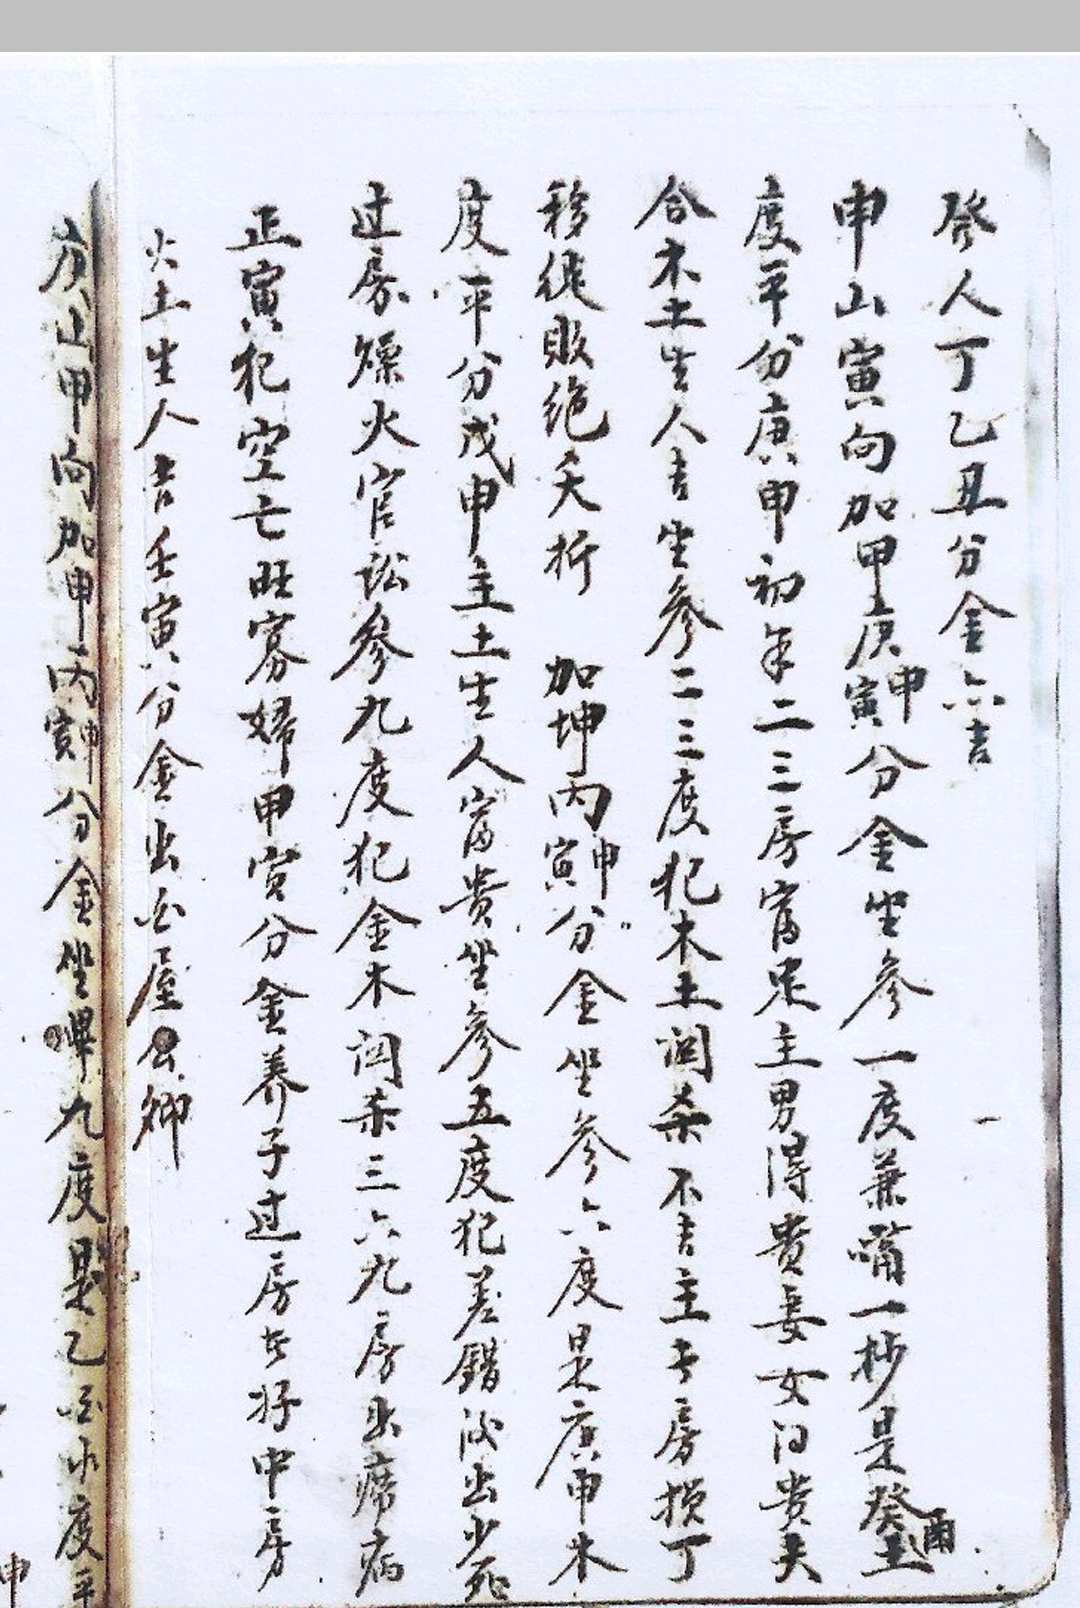 發人丁乙丑分金六吉
申山寅向加甲庚庚寅申分金坐參一度兼嘴一杪是癸酉土
度平分庚申初年二三房富足主男得貴妻女口貴夫
合木土生人吉坐參二三度犯木土関杀不吉主長房損丁
移徙敗絕夭折 加坤丙寅申分金坐參六度是庚申木
度平分戊申主土生人富貴坐參五度犯差錯決出少死
过房爆火官訟參九度犯金木関杀三六九房出癆病
正寅犯空亡旺寡婦甲寅分金养子过房長好中房
火土生人吉壬寅分金出屋公卿
庚山甲向加申丙寅申分金坐畢九度是乙酉水度平